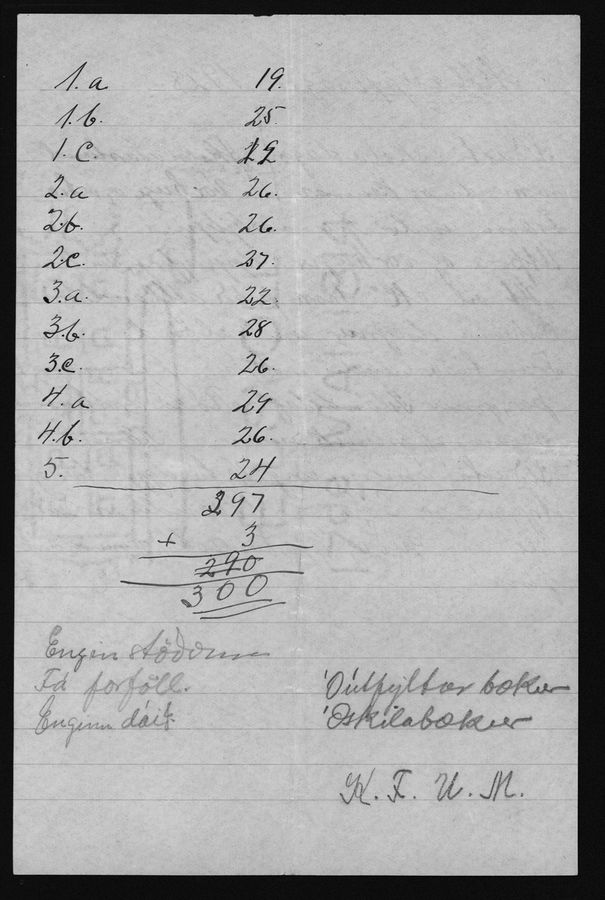 1.a 19.
1.b. 25.
1.c. 19
2.a 26.
2.b. 26.
2.c. 27.
3.a. 22.
3.b. 28
3.c. 26.
4.a 29
4.b. 26.
5. 24
297
+ 3
290
300
Engin stöðvun
Fá forföll.
Enginn dáið.
Óútfyltar bækur
Óskilabækur
K. F. U. M.